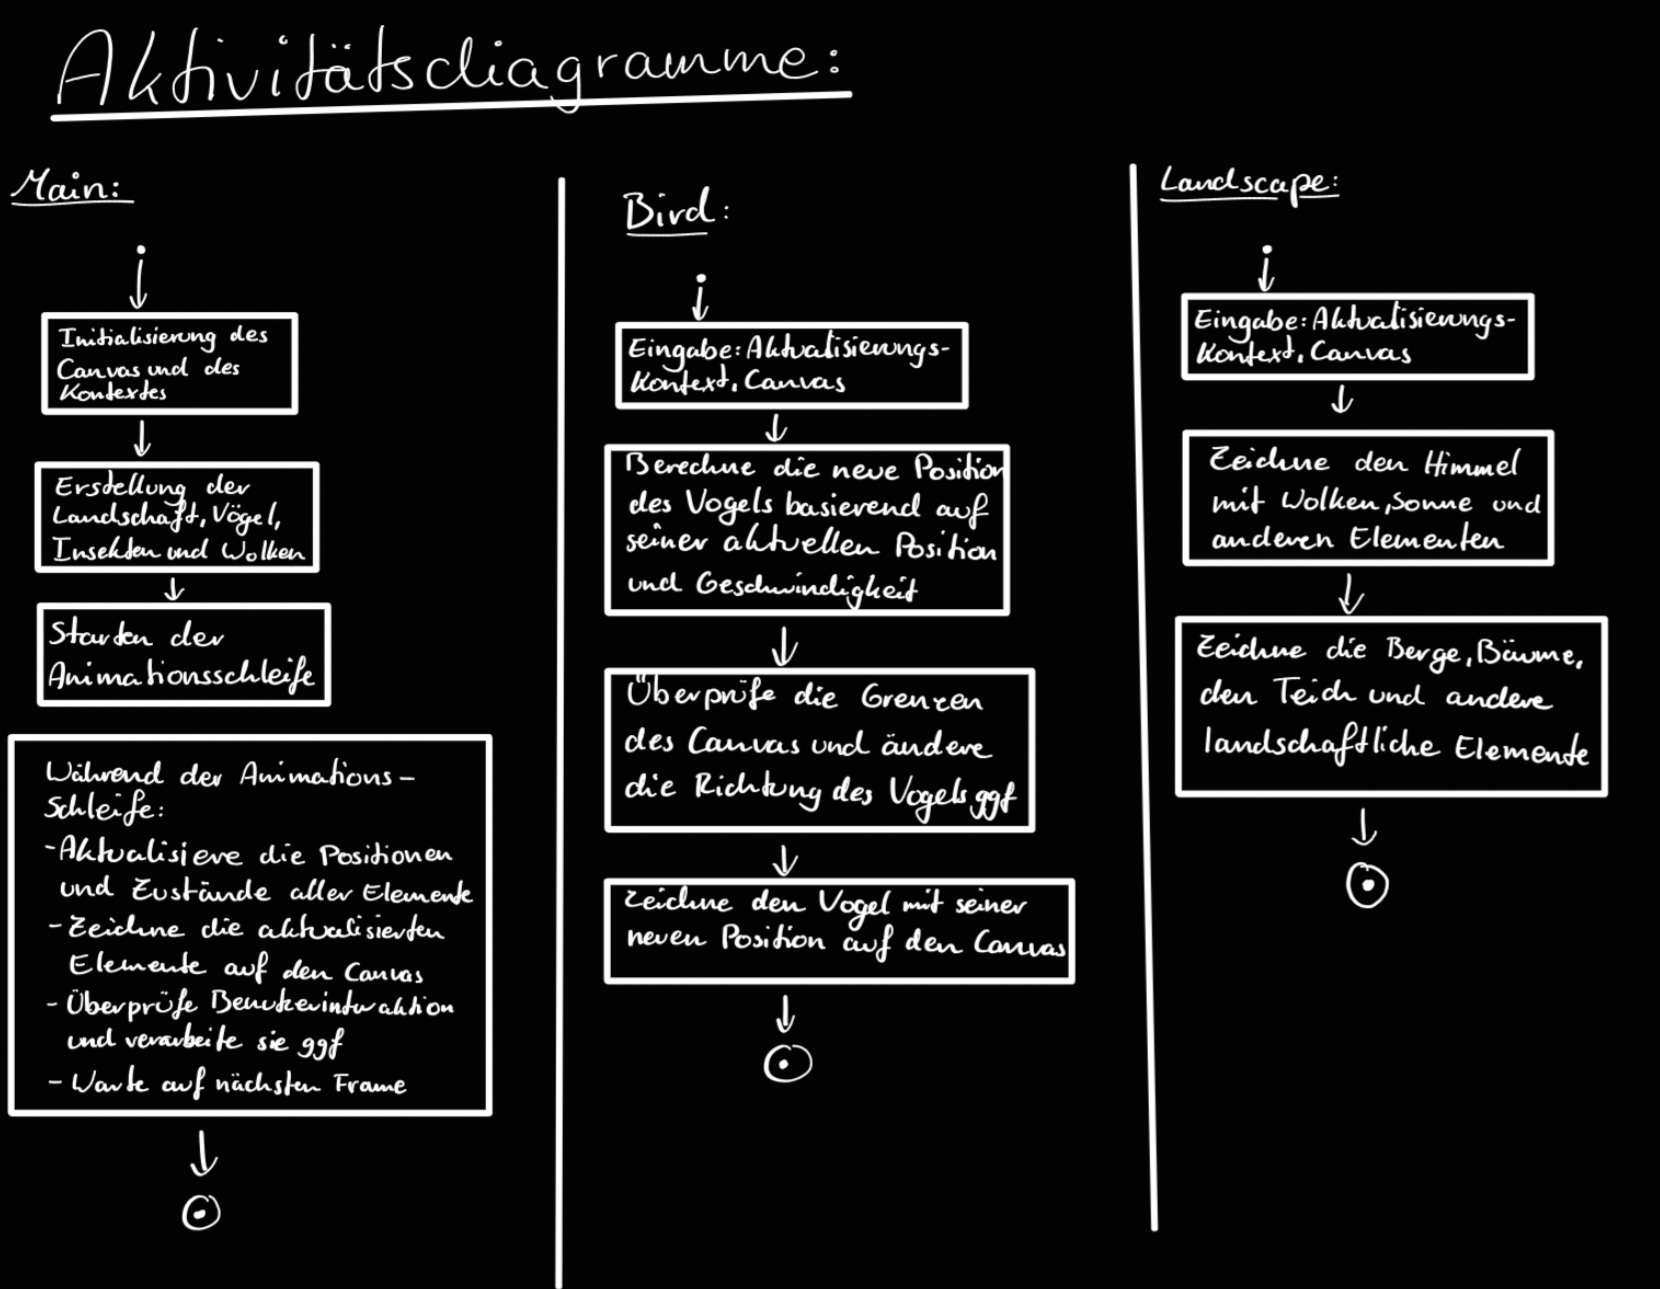 Aktivitätsdiagramme:
Main:
Initialisierung des
Canvas und des
Kontextes
Erstellung der
Landschaft, Vögel,
Insekten und Wolken
Starten der
Animationsschleife
Während der Animations-
schleife:
-Aktualisiere die Positionen
und Zustände aller Elemente
- Zeichne die aktualisierten
Elemente auf den Canvas
- Überprüfe Benutzerinteraktion
und verarbeite sie ggf
- Warte auf nächsten Frame
Bird:
Eingabe: Aktualisierungs-
kontext, Canvas
Berechne die neue Position
des Vogels basierend auf
seiner aktuellen Position
und Geschwindigkeit
Überprüfe die Grenzen
des Canvas und ändere
die Richtung des Vogels ggf
Zeichne den Vogel mit seiner
neuen Position auf den Canvas
Landscape:
Eingabe: Aktualisierungs-
kontext, Canvas
Zeichne den Himmel
mit Wolken, Sonne und
anderen Elementen
Zeichne die Berge, Bäume,
den Teich und andere
landschaftliche Elemente